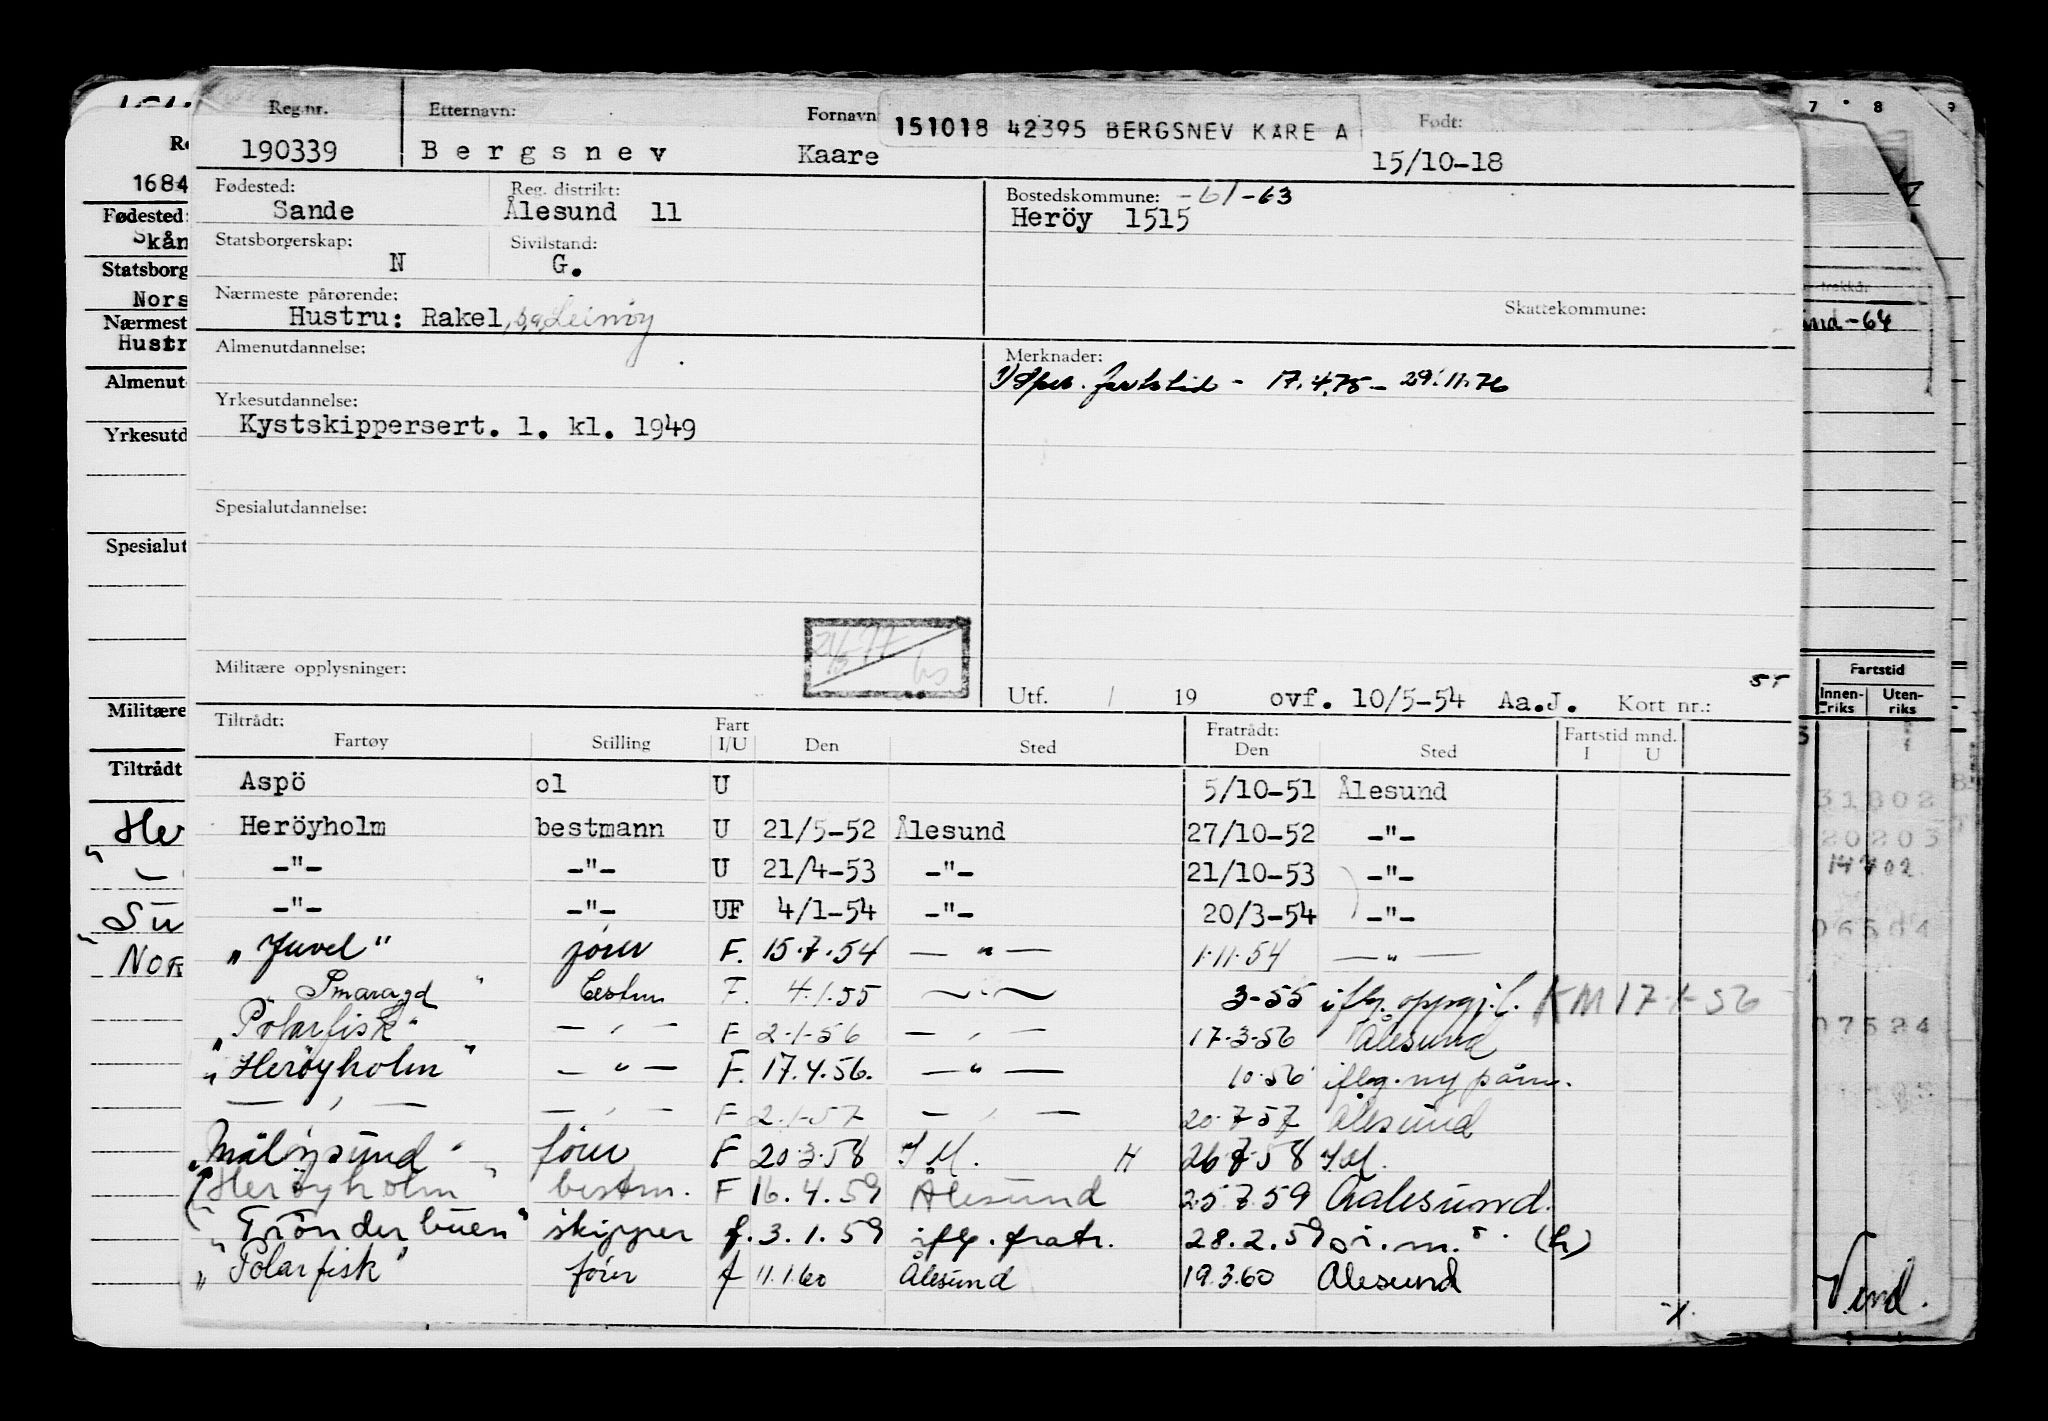 Reg.nr. Etternavn: Fornavn 151018 42395 BERGSNEV KARE A Født:
190339 Bergsnev Kaare 15/10-18
Fødested: Reg. distrikt: Bostedskommune: -61-63
Sande Ålesund 11 Heröy 1515
Statsborgerskap: Sivilstand:
N G.
Nærmeste pårørende: Skattekommune:
Hustru: Rakel, s.a. Leinöy
Almenutdannelse: Merknader:
1) Sper. fartstid - 17.4.75 - 29.11.76
Yrkesutdannelse:
Kystskippersert. 1. kl. 1949
Spesialutdannelse:
Militære opplysninger:
Utf. / 19 ovf. 10/5-54 Aa.J. Kort nr.: 5T
Tiltrådt: Fart Fratrådt: Fartstid mnd.
Fartøy Stilling I/U Den Sted Den Sted I U
Aspö ol U 5/10-51 Ålesund
Heröyholm bestmann U 21/5-52 Ålesund 27/10-52 -"-
-"- -"- U 21/4-53 -"- 21/10-53 -"-
-"- -"- UF 4/1-54 -"- 20/3-54 -"-
"Juvel" förer F. 15.7.54 — " — 1.11.54 — " —
" Smaragd " Bestm F. 4.1.55 — " — 3-55 iflg. oppgj.l. KM 17-1-56
"Polarfisk" — " — F 2-1-56 — " — 17-3-56 Ålesund
"Heröyholm" — " — F. 17.4.56. — " — 10-56 iflg. ny påm.
— " — — " — F 2.1-57 — " — 20-7-57 Ålesund
"Målöysund" förer F 20.3.58 I M. H 26.7.58 I.M.
"Heröyholm" bestm. F 16.4.59 Ålesund 25.7.59 Aalesund.
"Trönderbuen" skipper f. 3.1.59 iflg. fratr. 28.2.59 (h)
"Polarfisk" förer f 11.1.60 Ålesund 19.3.60 Ålesund
1684
Fødested:
Skån
Statsborg
Nors
Nærmest
Hustr
Almenut
Yrkesutd
Spesialut
Militære
Tiltrådt
Her
Su
Nor
7 8 9
-64
Fartstid
Innen-riks Uten-riks
31802
20203
14702
06504
07524
Vend.